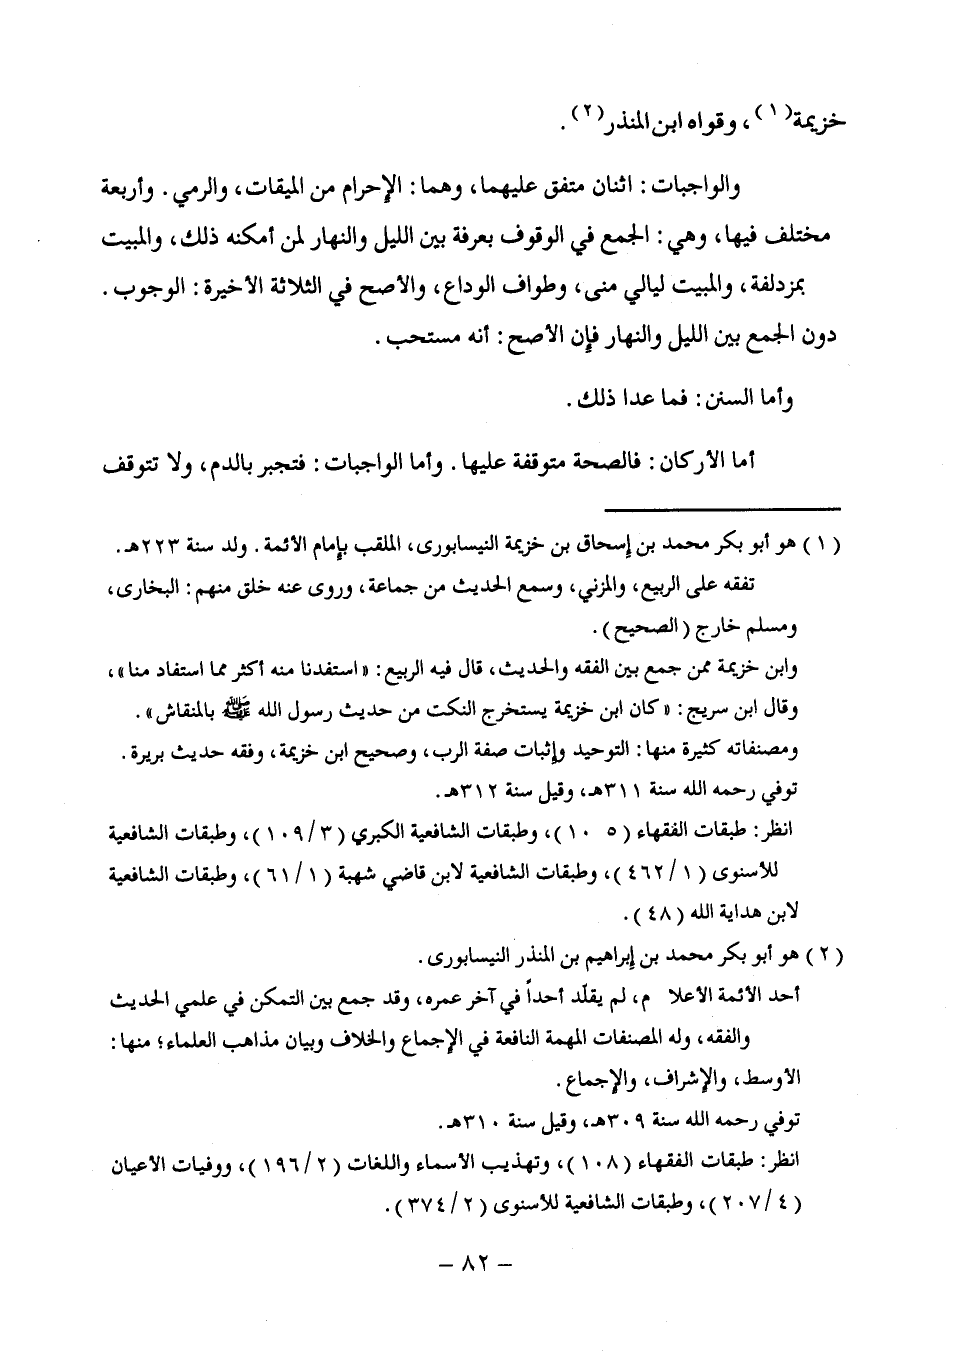 خزيمة(١)، وقواه ابن المنذر(٢).
والواجبات: اثنان متفق عليهما، وهما: الإحرام من الميقات، والرمي. وأربعة
مختلف فيها، وهي: الجمع في الوقوف بعرفة بين الليل والنهار لمن أمكنه ذلك، والمبيت
بمزدلفة، والمبيت ليالي منى، وطواف الوداع، والأصح في الثلاثة الأخيرة: الوجوب.
دون الجمع بين الليل والنهار فإن الأصح: أنه مستحب.
وأما السنن: فما عدا ذلك.
أما الأركان: فالصحة متوقفة عليها. وأما الواجبات: فتجبر بالدم، ولا تتوقف
(١) هو أبو بكر محمد بن إسحاق بن خزيمة النيسابورى، الملقب بإمام الأئمة. ولد سنة ٢٢٣هـ.
تفقه على الربيع، والمزني، وسمع الحديث من جماعة، وروى عنه خلق منهم: البخارى،
ومسلم خارج (الصحيح).
وابن خزيمة ممن جمع بين الفقه والحديث، قال فيه الربيع: «استفدنا منه أكثر مما استفاد منا»،
وقال ابن سريج: «كان ابن خزيمة يستخرج النكت من حديث رسول الله ﷺ بالمنقاش».
ومصنفاته كثيرة منها: التوحيد وإثبات صفة الرب، وصحيح ابن خزيمة، وفقه حديث بريرة.
توفي رحمه الله سنة ٣١١هـ، وقيل سنة ٣١٢هـ.
انظر: طبقات الفقهاء (١٠٥)، وطبقات الشافعية الكبري (٣/١٠٩)، وطبقات الشافعية
للأسنوى (١/٤٦٢)، وطبقات الشافعية لابن قاضي شهبة (١/٦١)، وطبقات الشافعية
لابن هداية الله (٤٨).
(٢) هو أبو بكر محمد بن إبراهيم بن المنذر النيسابورى.
أحد الأئمة الأعلام، لم يقلّد أحداً في آخر عمره، وقد جمع بين التمكن في علمي الحديث
والفقه، وله المصنفات المهمة النافعة في الإجماع والخلاف وبيان مذاهب العلماء؛ منها:
الأوسط، والإشراف، والإجماع.
توفي رحمه الله سنة ٣٠٩هـ، وقيل سنة ٣١٠هـ.
انظر: طبقات الفقهاء (١٠٨)، وتهذيب الأسماء واللغات (٢/١٩٦)، ووفيات الأعيان
(٤/٢٠٧)، وطبقات الشافعية للأسنوى (٢/٣٧٤).
- ٨٢ -